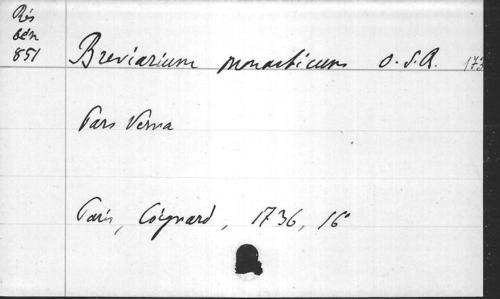 Rés
bén
851
Breviarium monasticum O.S.B.
Pars Verna
Paris, Coignard, 1736, 16°